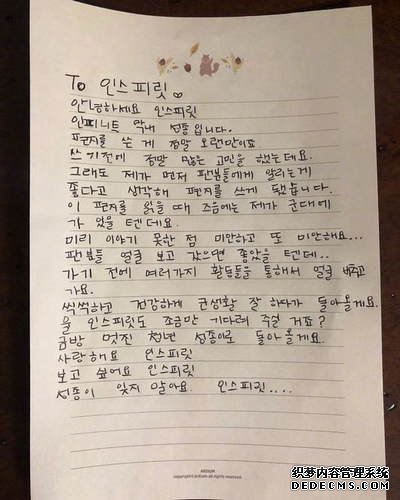 To 인스피릿♡
안녕하세요 인스피릿
인피니트 막내 성종입니다.
편지를 쓴 게 정말 오랜만이죠
쓰기전에 정말 많은 고민을 했는데요.
그래도 제가 먼저 팬분들에게 알리는게
좋다고 생각해 편지를 쓰게 됐습니다.
이 편지를 읽을 때 즈음에는 제가 군대에
가 있을 텐데요.
미리 이야기 못한 점 미안하고 또 미안해요...
팬분들 얼굴 보고 갔으면 좋았을 텐데..
가기 전에 여러가지 활동들을 통해서 얼굴 비추고
가요.
씩씩하고 건강하게 군생활 잘 하다가 돌아올게요.
울 인스피릿도 조금만 기다려 주실 거죠?
금방 멋진 청년 성종이로 돌아 올게요.
사랑해요 인스피릿
보고 싶어요 인스피릿
성종이 잊지 말아요. 인스피릿....
织梦内容管理系统
DEDECMS.COM